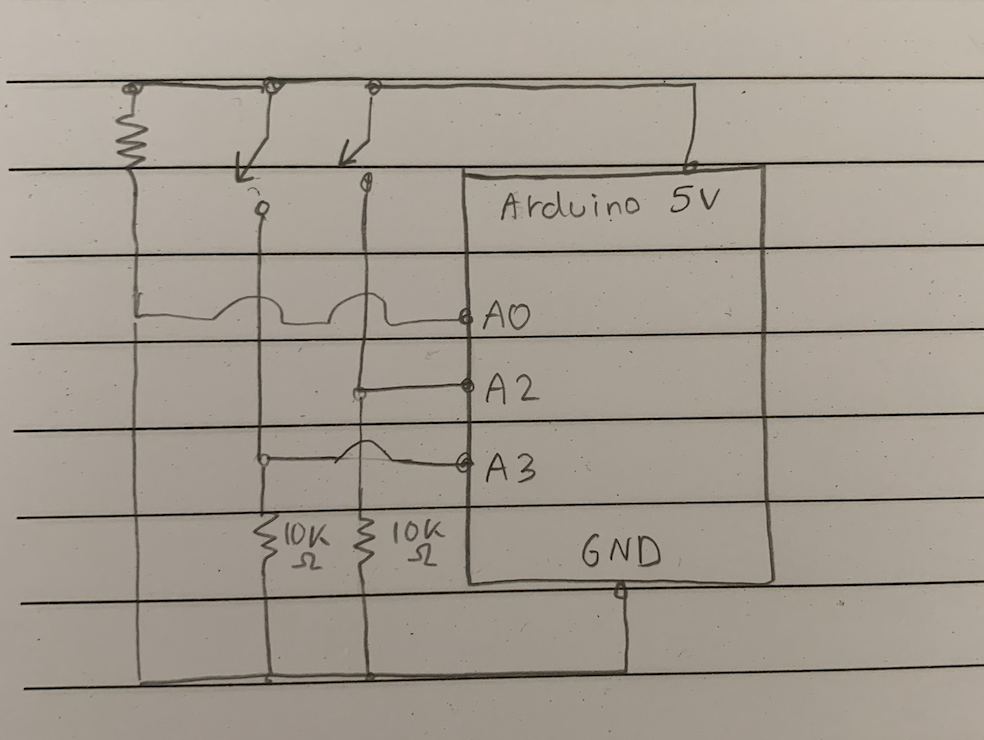 Arduino 5V
A0
A2
A3
10K
Ω
10K
Ω
GND